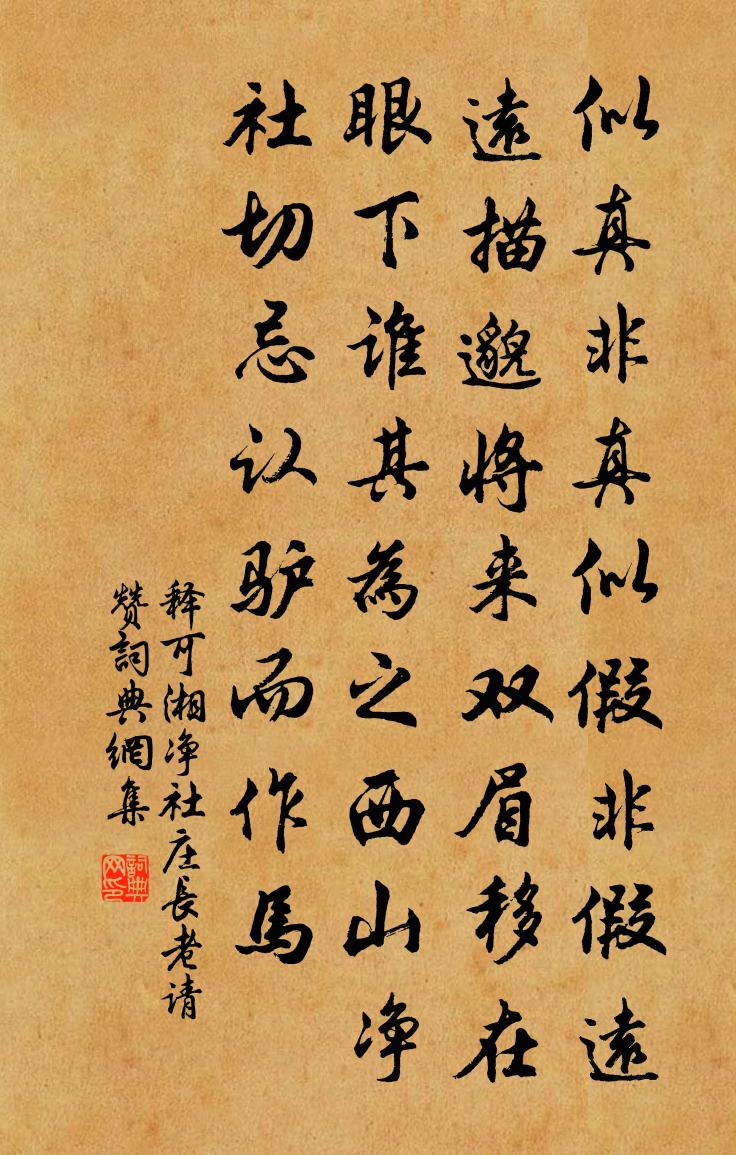 似真非真似假非假遠
遠描邈將来双眉移在
眼下谁其為之西山净
社切忌认驴而作馬
释可湘净社庄長老请
赞詞典網集
詞典网印